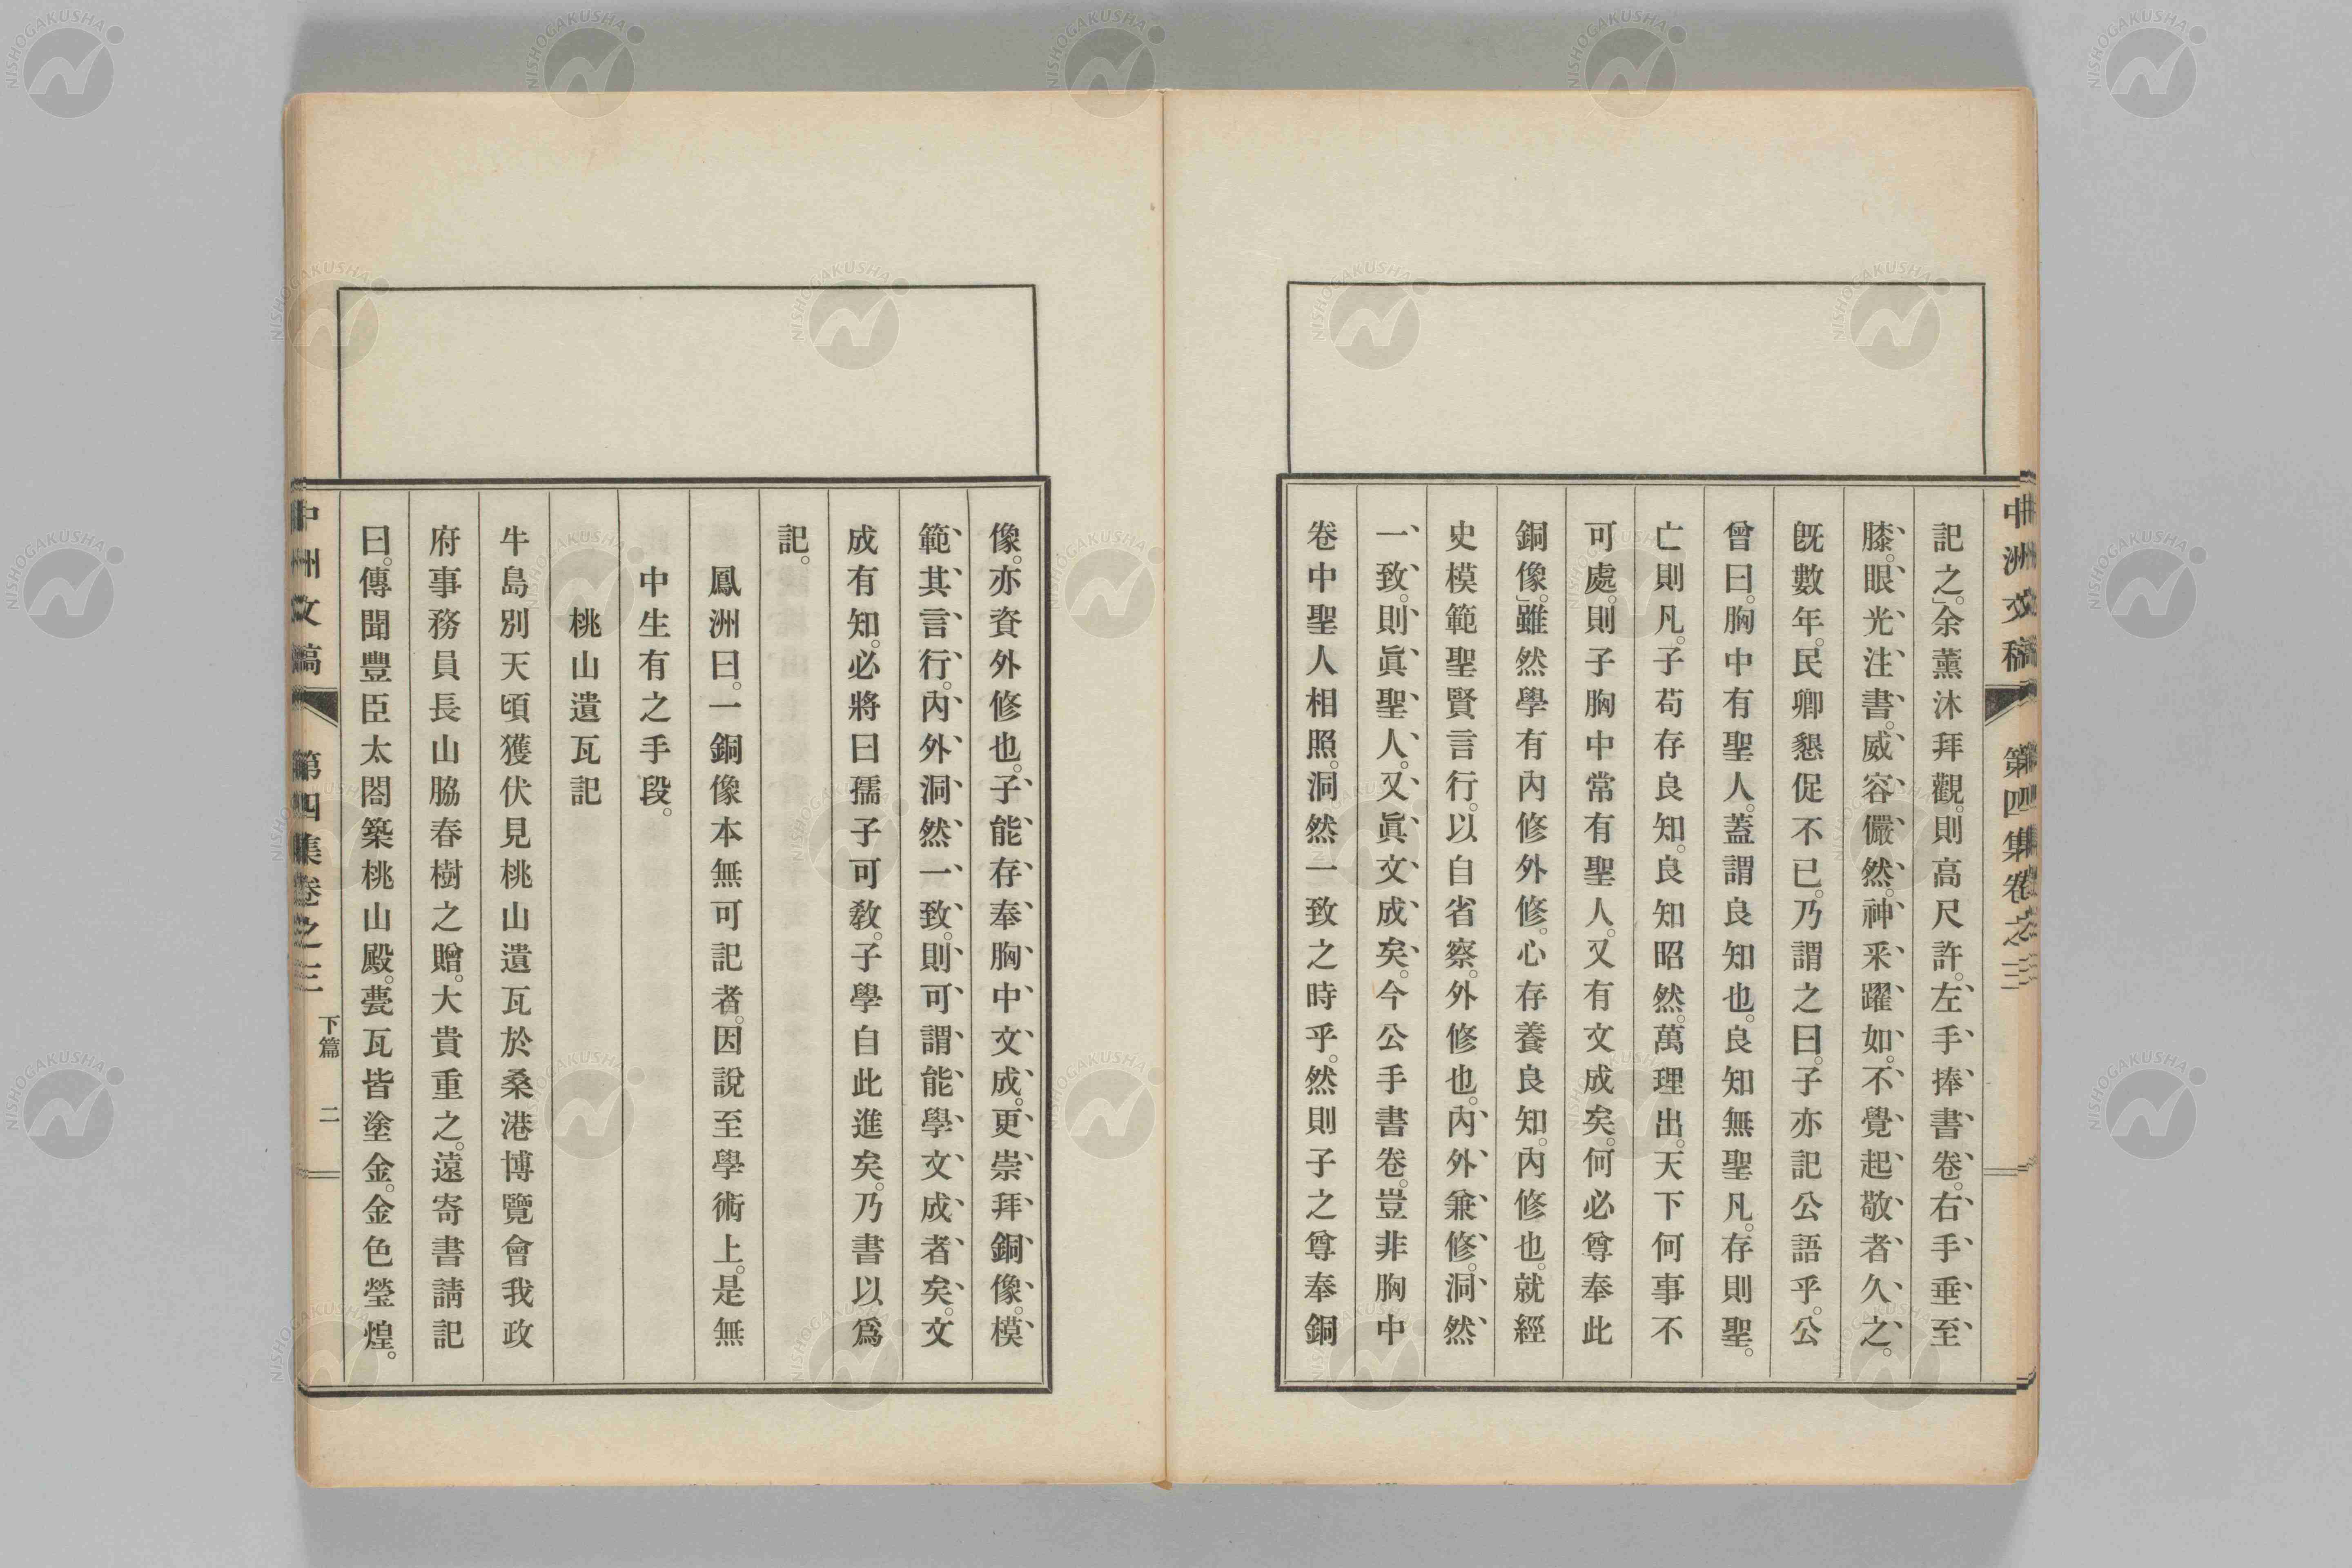 中洲文稿 第四集卷之三
記之」余薰沐拜觀。則高尺許。左手捧書卷。右手垂至
膝。眼光注書。威容儼然。神釆躍如。不覺起敬者久之。
既數年。民卿懇促不已。乃謂之曰。子亦記公語乎。公
曾曰。胸中有聖人。蓋謂良知也。良知無聖凡。存則聖。
亡則凡。子苟存良知。良知昭然。萬理出。天下何事不
可處。則子胸中常有聖人。又有文成矣。何必尊奉此
銅像。」雖然學有內修外修。心存養良知。內修也。就經
史模範聖賢言行。以自省察。外修也。內外兼修。洞然
一致。則眞聖人。又眞文成矣。今公手書卷。豈非胸中
卷中聖人相照。洞然一致之時乎。然則子之尊奉銅
像。亦資外修也。子能存奉胸中文成。更崇拜銅像。模
範其言行。內外洞然一致。則可謂能學文成者矣。文
成有知。必將曰孺子可敎。子學自此進矣。乃書以爲
記。
鳳洲曰。一銅像本無可記者。因說至學術上。是無
中生有之手段。
桃山遺瓦記
牛島別天頃獲伏見桃山遺瓦於桑港博覽會我政
府事務員長山脇春樹之贈。大貴重之。遠寄書請記
曰。傳聞豐臣太閤築桃山殿。甍瓦皆塗金。金色瑩煌。
中洲文稿 第四集卷之三 下篇 二
NISHOGAKUSHA